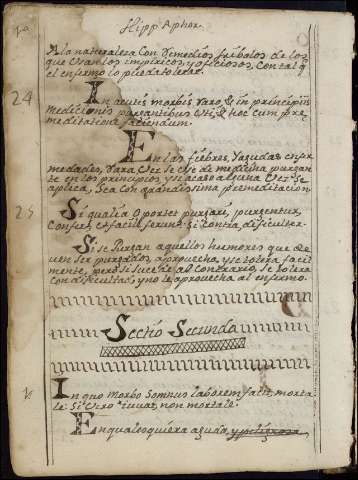 Hipp Aphor.
A la naturaleza Con remedios fribolos de los
que Usan los impíricos y oficiosos, Con tal q
el enfermo lo pueda tolerar.
24
In acutis morbis raro, & in principiis
medicinis purgantibus Uti, & hoc cum pre
meditatione faciendum.
En las fiebres Yagudas enfer
medades, rara Vez Se Use de medicina purgan
te en los principios, y si acaso alguna Vez Se
aplica, Sea Con grandissima premeditacion
25
Si qualia Oportet purgari, purgentur
Confert, et facile ferunt: Si Contra, difficulter.
Si se Purgan aquellos humores que de
ven Ser purgados, aprovecha, y se tolera facil
mente, pero si sucede al Contrario, Se tolera
Con dificultad, y no le aprovecha al enfermo.
Sectio Secunda
In quo Morbo Somnus laborem facit, morta
le: Si Vero iuvat, non mortale.
En qualesquiera aguda, y peligrosa